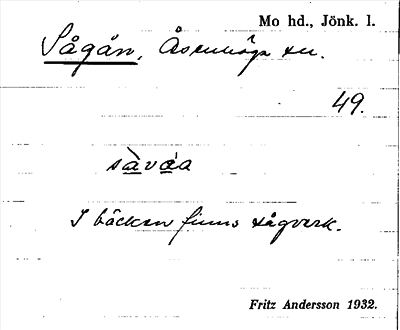 Mo hd., Jönk. l.
Sågån, Åsenhöga sn.
49.
sàvá̱a
I bäcken finns sågverk.
Fritz Andersson 1932.